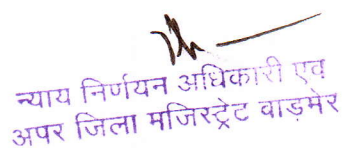 न्याय निर्णयन अधिकारी एवं
अपर जिला मजिस्ट्रेट वाड़मेर